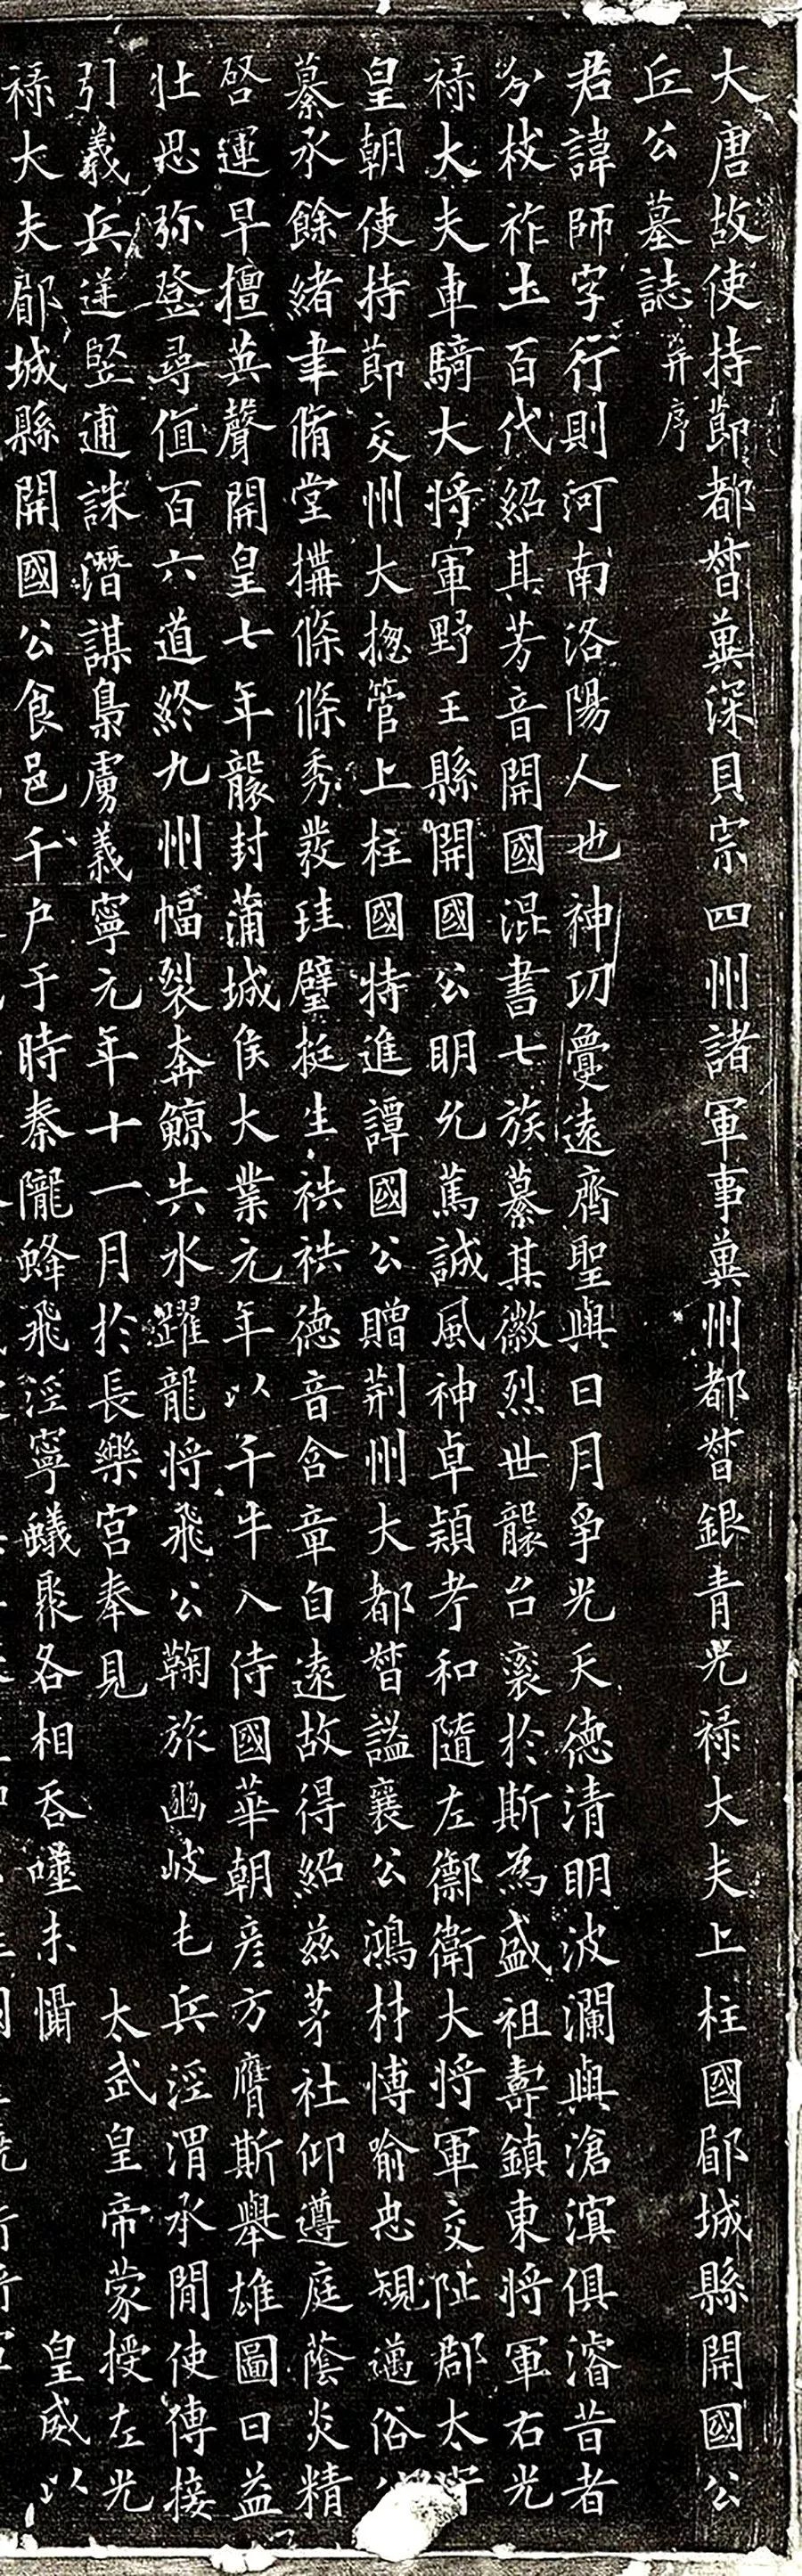 大唐故使持節都督冀深貝宗四州諸軍事冀州都督銀青光祿大夫上柱國郿城縣開國公
丘公墓誌并序
君諱師字行則河南洛陽人也神功敻遠齊聖與日月爭光天德清明波瀾與滄溟俱濬昔者
分枝祚土百代紹其芳音開國混書七族纂其徽烈世襲台袞於斯為盛祖壽鎮東將軍右光
祿大夫車騎大將軍野王縣開國公明允篤誠風神卓穎考和隨左禦衛大將軍交阯郡太守
皇朝使持節交州大揔管上柱國特進譚國公贈荊州大都督謚襄公鴻材博喻忠規邁俗公
纂承餘緒聿脩堂搆條條秀發珪璧挺生祑祑德音含章自遠故得紹茲茅社仰遵庭蔭炎精
啓運早擅英聲開皇七年襲封蒲城侯大業元年以千牛入侍國華朝彥方膺斯舉雄圖日益
壯思弥登尋值百六道終九州幅裂奔鯨失水躍龍將飛公鞠旅豳岐乇兵涇渭承間使傳接
引義兵遂竪逋誅潛謀梟虜義寧元年十一月於長樂宮奉見 太武皇帝蒙授左光
祿大夫郿城縣開國公食邑千戶于時秦隴蜂飛涇寧蟻聚各相吞噬未懾 皇威以